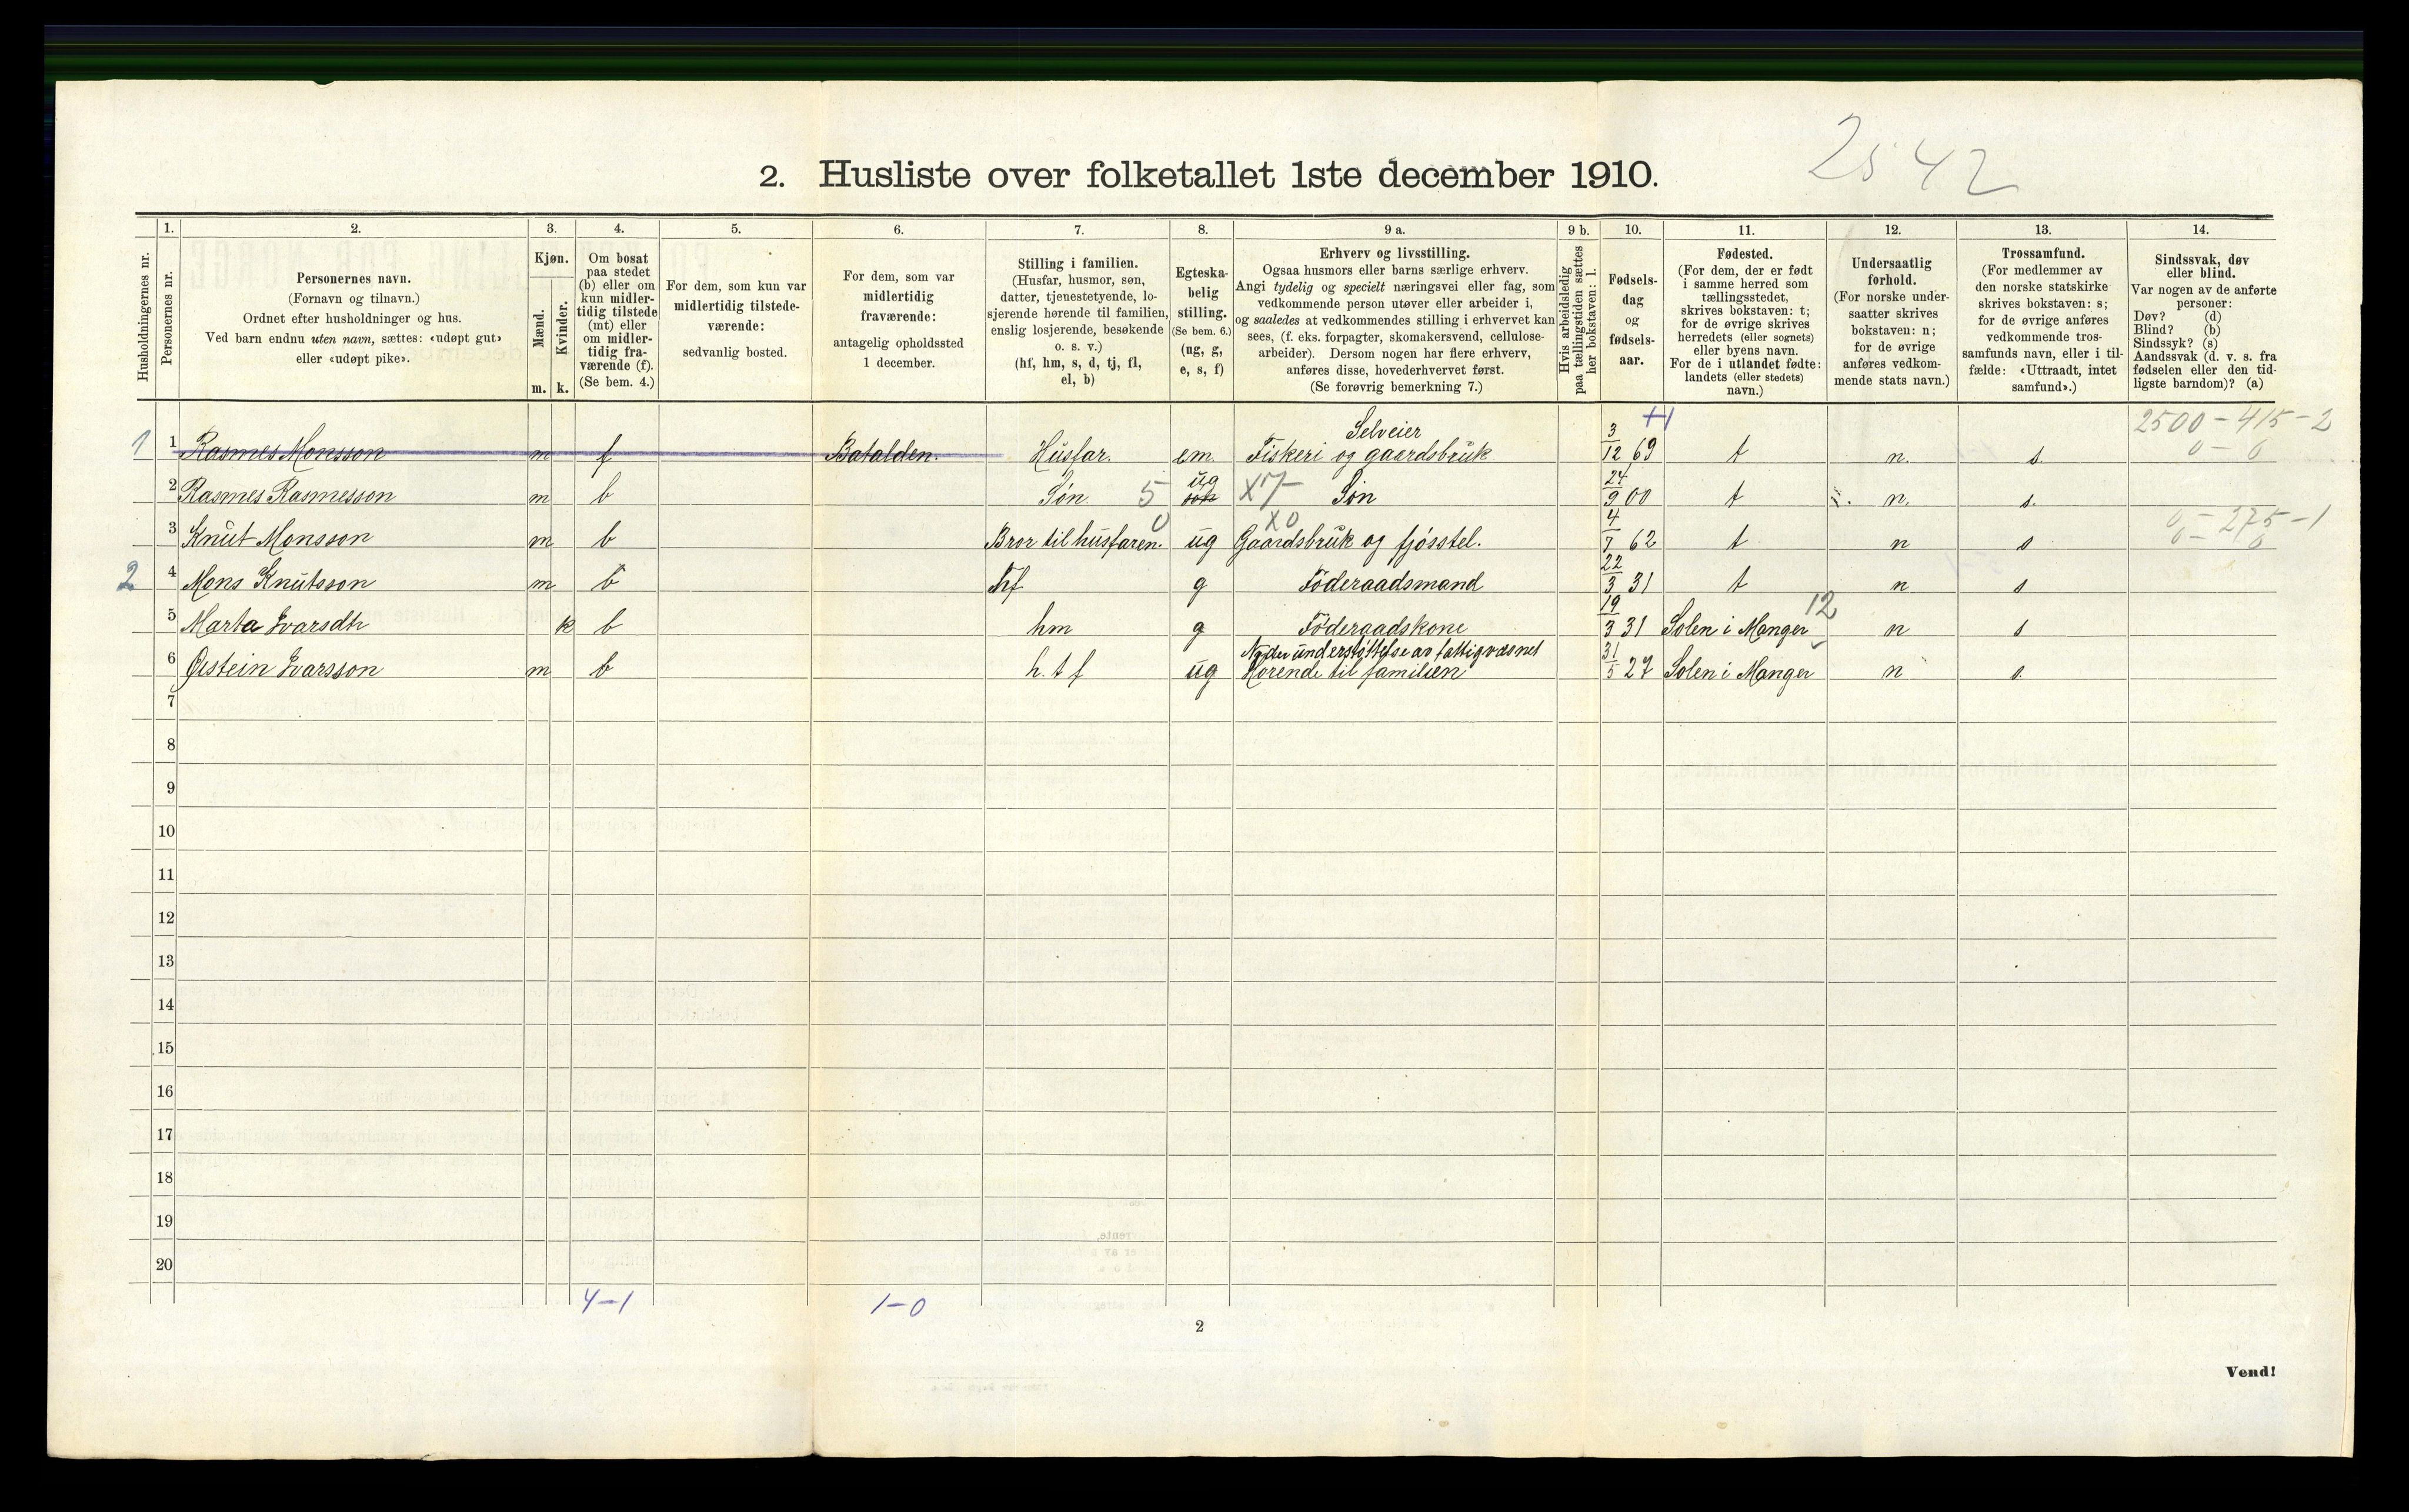 2542
2. Husliste over folketallet 1ste december 1910.
Husholdningernes nr.
1.
Personernes nr.
2.
Personernes navn.
(Fornavn og tilnavn.)
Ordnet efter husholdninger og hus.
Ved barn endnu uten navn, sættes: «udøpt gut»
eller «udøpt pike».
3.
Kjøn.
Mænd.
Kvinder.
m. k.
4.
Om bosat
paa stedet
(b) eller om
kun midler-
tidig tilstede
(mt) eller
om midler-
tidig fra-
værende (f).
(Se bem. 4.)
5.
For dem, som kun var
midlertidig tilstede-
værende:
sedvanlig bosted.
6.
For dem, som var
midlertidig
fraværende:
antagelig opholdssted
1 december.
7.
Stilling i familien.
(Husfar, husmor, søn,
datter, tjenestetyende, lo-
sjerende hørende til familien,
enslig losjerende, besøkende
o. s. v.)
(hf, hm, s, d, tj, fl,
el, b)
8.
Egteska-
belig
stilling.
(Se bem. 6.)
(ug, g,
e, s, f)
9 a.
Erhverv og livsstilling.
Ogsaa husmors eller barns særlige erhverv.
Angi tydelig og specielt næringsvei eller fag, som
vedkommende person utøver eller arbeider i,
og saaledes at vedkommendes stilling i erhvervet kan
sees, (f. eks. forpagter, skomakersvend, cellulose-
arbeider). Dersom nogen har flere erhverv,
anføres disse, hovederhvervet først.
(Se forøvrig bemerkning 7.)
9 b.
Hvis arbeidsledig
paa tællingstiden sættes
her bokstaven: l.
10.
Fødsels-
dag
og
fødsels-
aar.
11.
Fødested.
(For dem, der er født
i samme herred som
tællingsstedet,
skrives bokstaven: t;
for de øvrige skrives
herredets (eller sognets)
eller byens navn.
For de i utlandet fødte:
landets (eller stedets)
navn.)
12.
Undersaatlig
forhold.
(For norske under-
saatter skrives
bokstaven: n;
for de øvrige
anføres vedkom-
mende stats navn.)
13.
Trossamfund.
(For medlemmer av
den norske statskirke
skrives bokstaven: s;
for de øvrige anføres
vedkommende tros-
samfunds navn, eller i til-
fælde: «Uttraadt, intet
samfund».)
14.
Sindssvak, døv
eller blind.
Var nogen av de anførte
personer:
Døv? (d)
Blind? (b)
Sindssyk? (s)
Aandssvak (d. v. s. fra
fødselen eller den tid-
ligste barndom)? (a)
+1 2500-415-2
Selveier 0-0
1 1 Rasmes Monsson m f Batalden. Husfar. em. Fiskeri og gaardsbruk 3/12 69 t n. s.
ug
2 Rasmes Rasmesson m b Søn. 5 søn X7- Søn 24/9 00 t n. s.
0 X0 0-275-1
3 Knut Monsson m b Bror til husfaren. ug Gaardsbruk og fjósstel. 4/7 62 t n s 0-0
2 4 Mons Knutsson m b hf g Föderaadsmand 22/3 31 t n s
5 Marta Ivarsdtr k b hm g Föderaadskone 19/3 31 Solen i Manger 12 n s
Nyder understöttelse av fattigvæsnet
6 Østein Ivarsson m b h. t f ug Hörende til familien 31/5 27 Solen i Manger n s.
7
8
9
10
11
12
13
14
15
16
17
18
19
20
4-1 1-0
2
Vend!